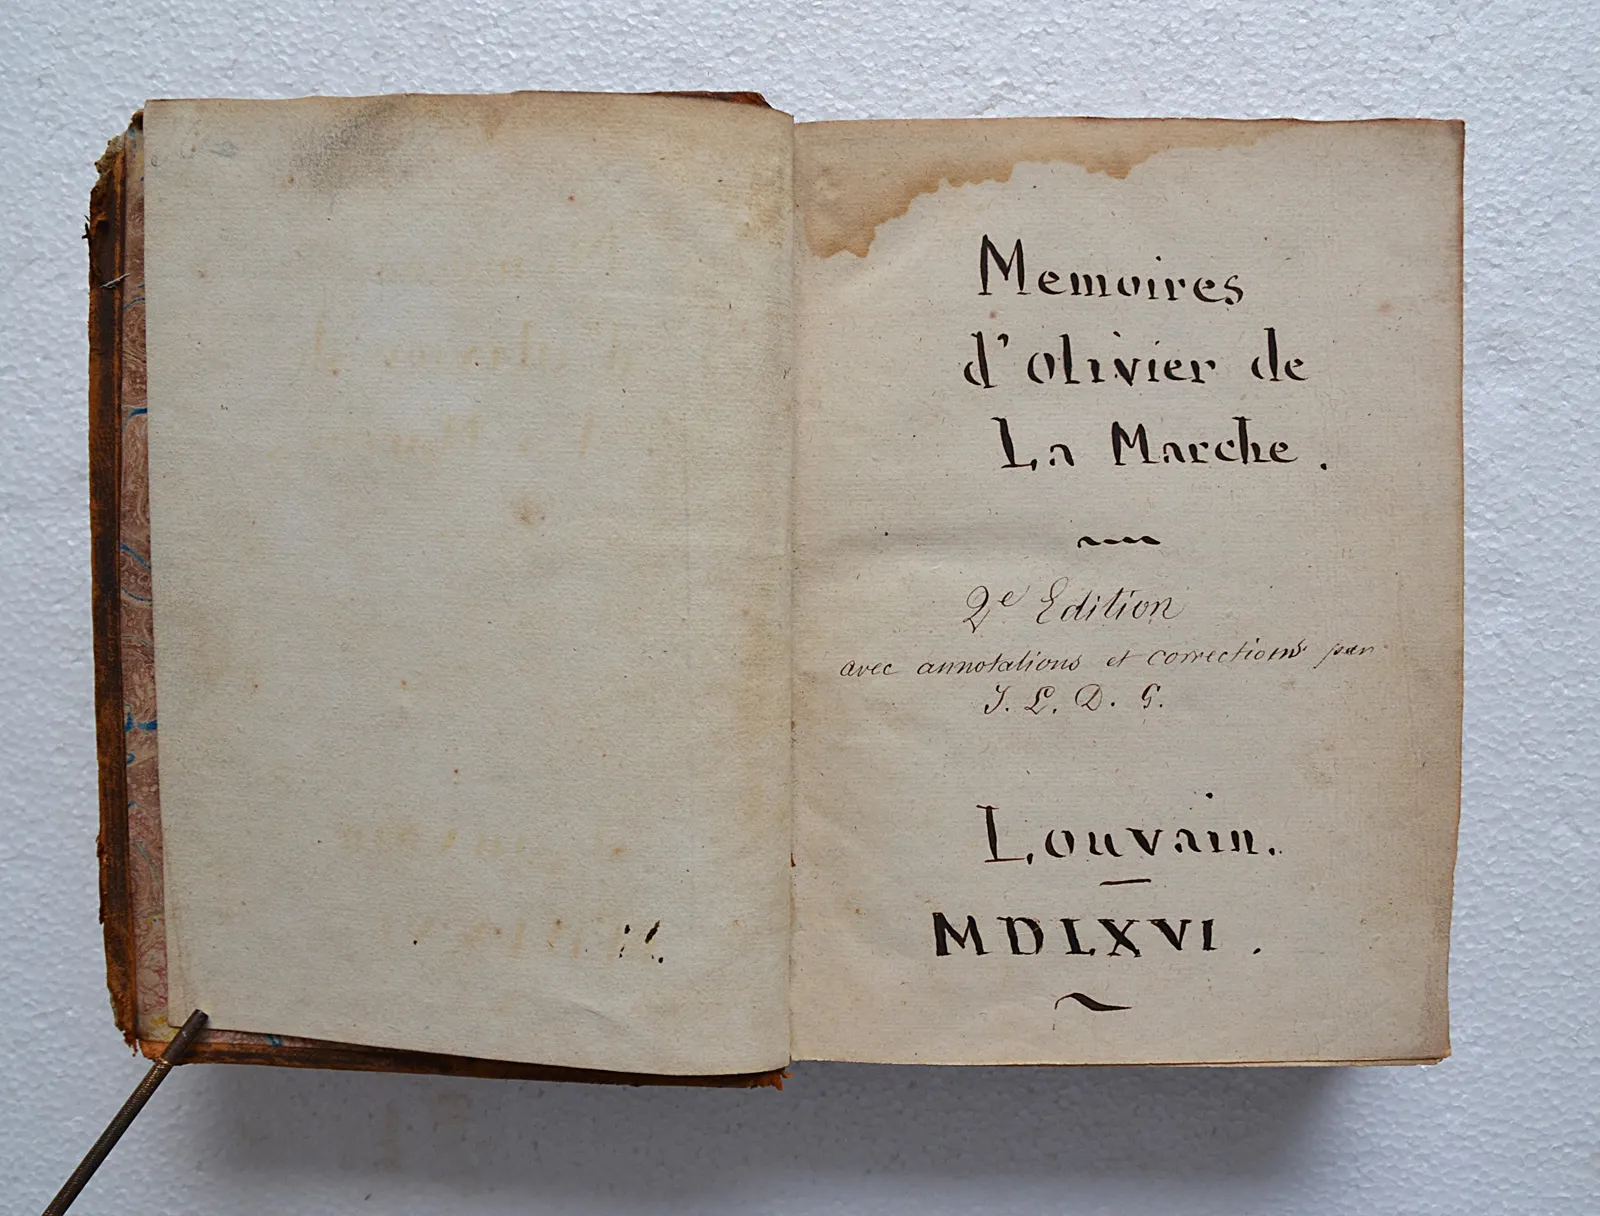 Memoires
d'olivier de
La Marche.
2e Edition
avec annotations et corrections par
J. L. D. G.
Louvain.
MDLXVI.